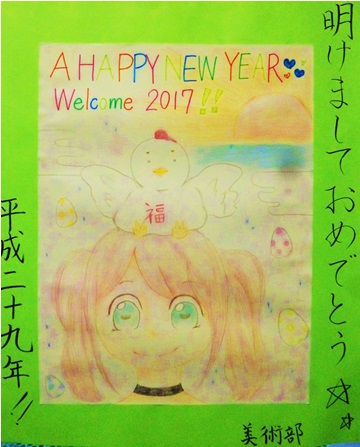 明けまして おめでとう☆☆
A HAPPY NEW YEAR
Welcome 2017!!
福
平成二十九年!!
美術部